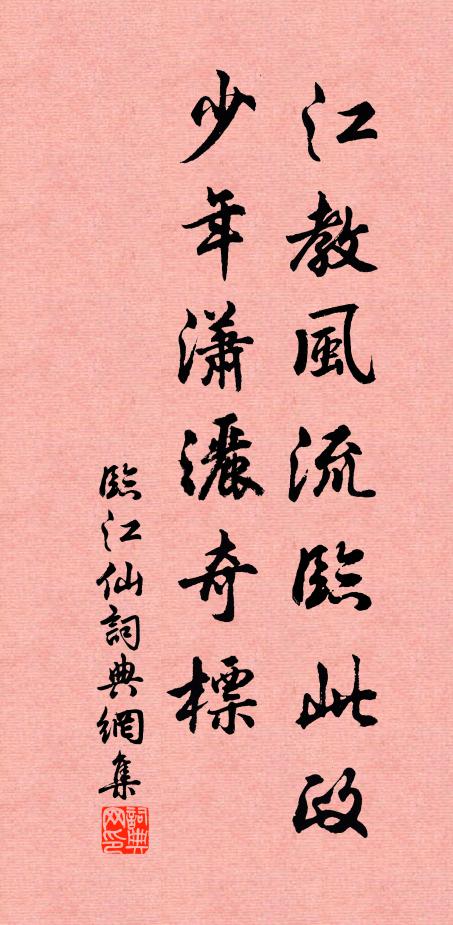 江教風流臨此政
少年瀟灑奇標
臨江仙詞典網集
詞典網印